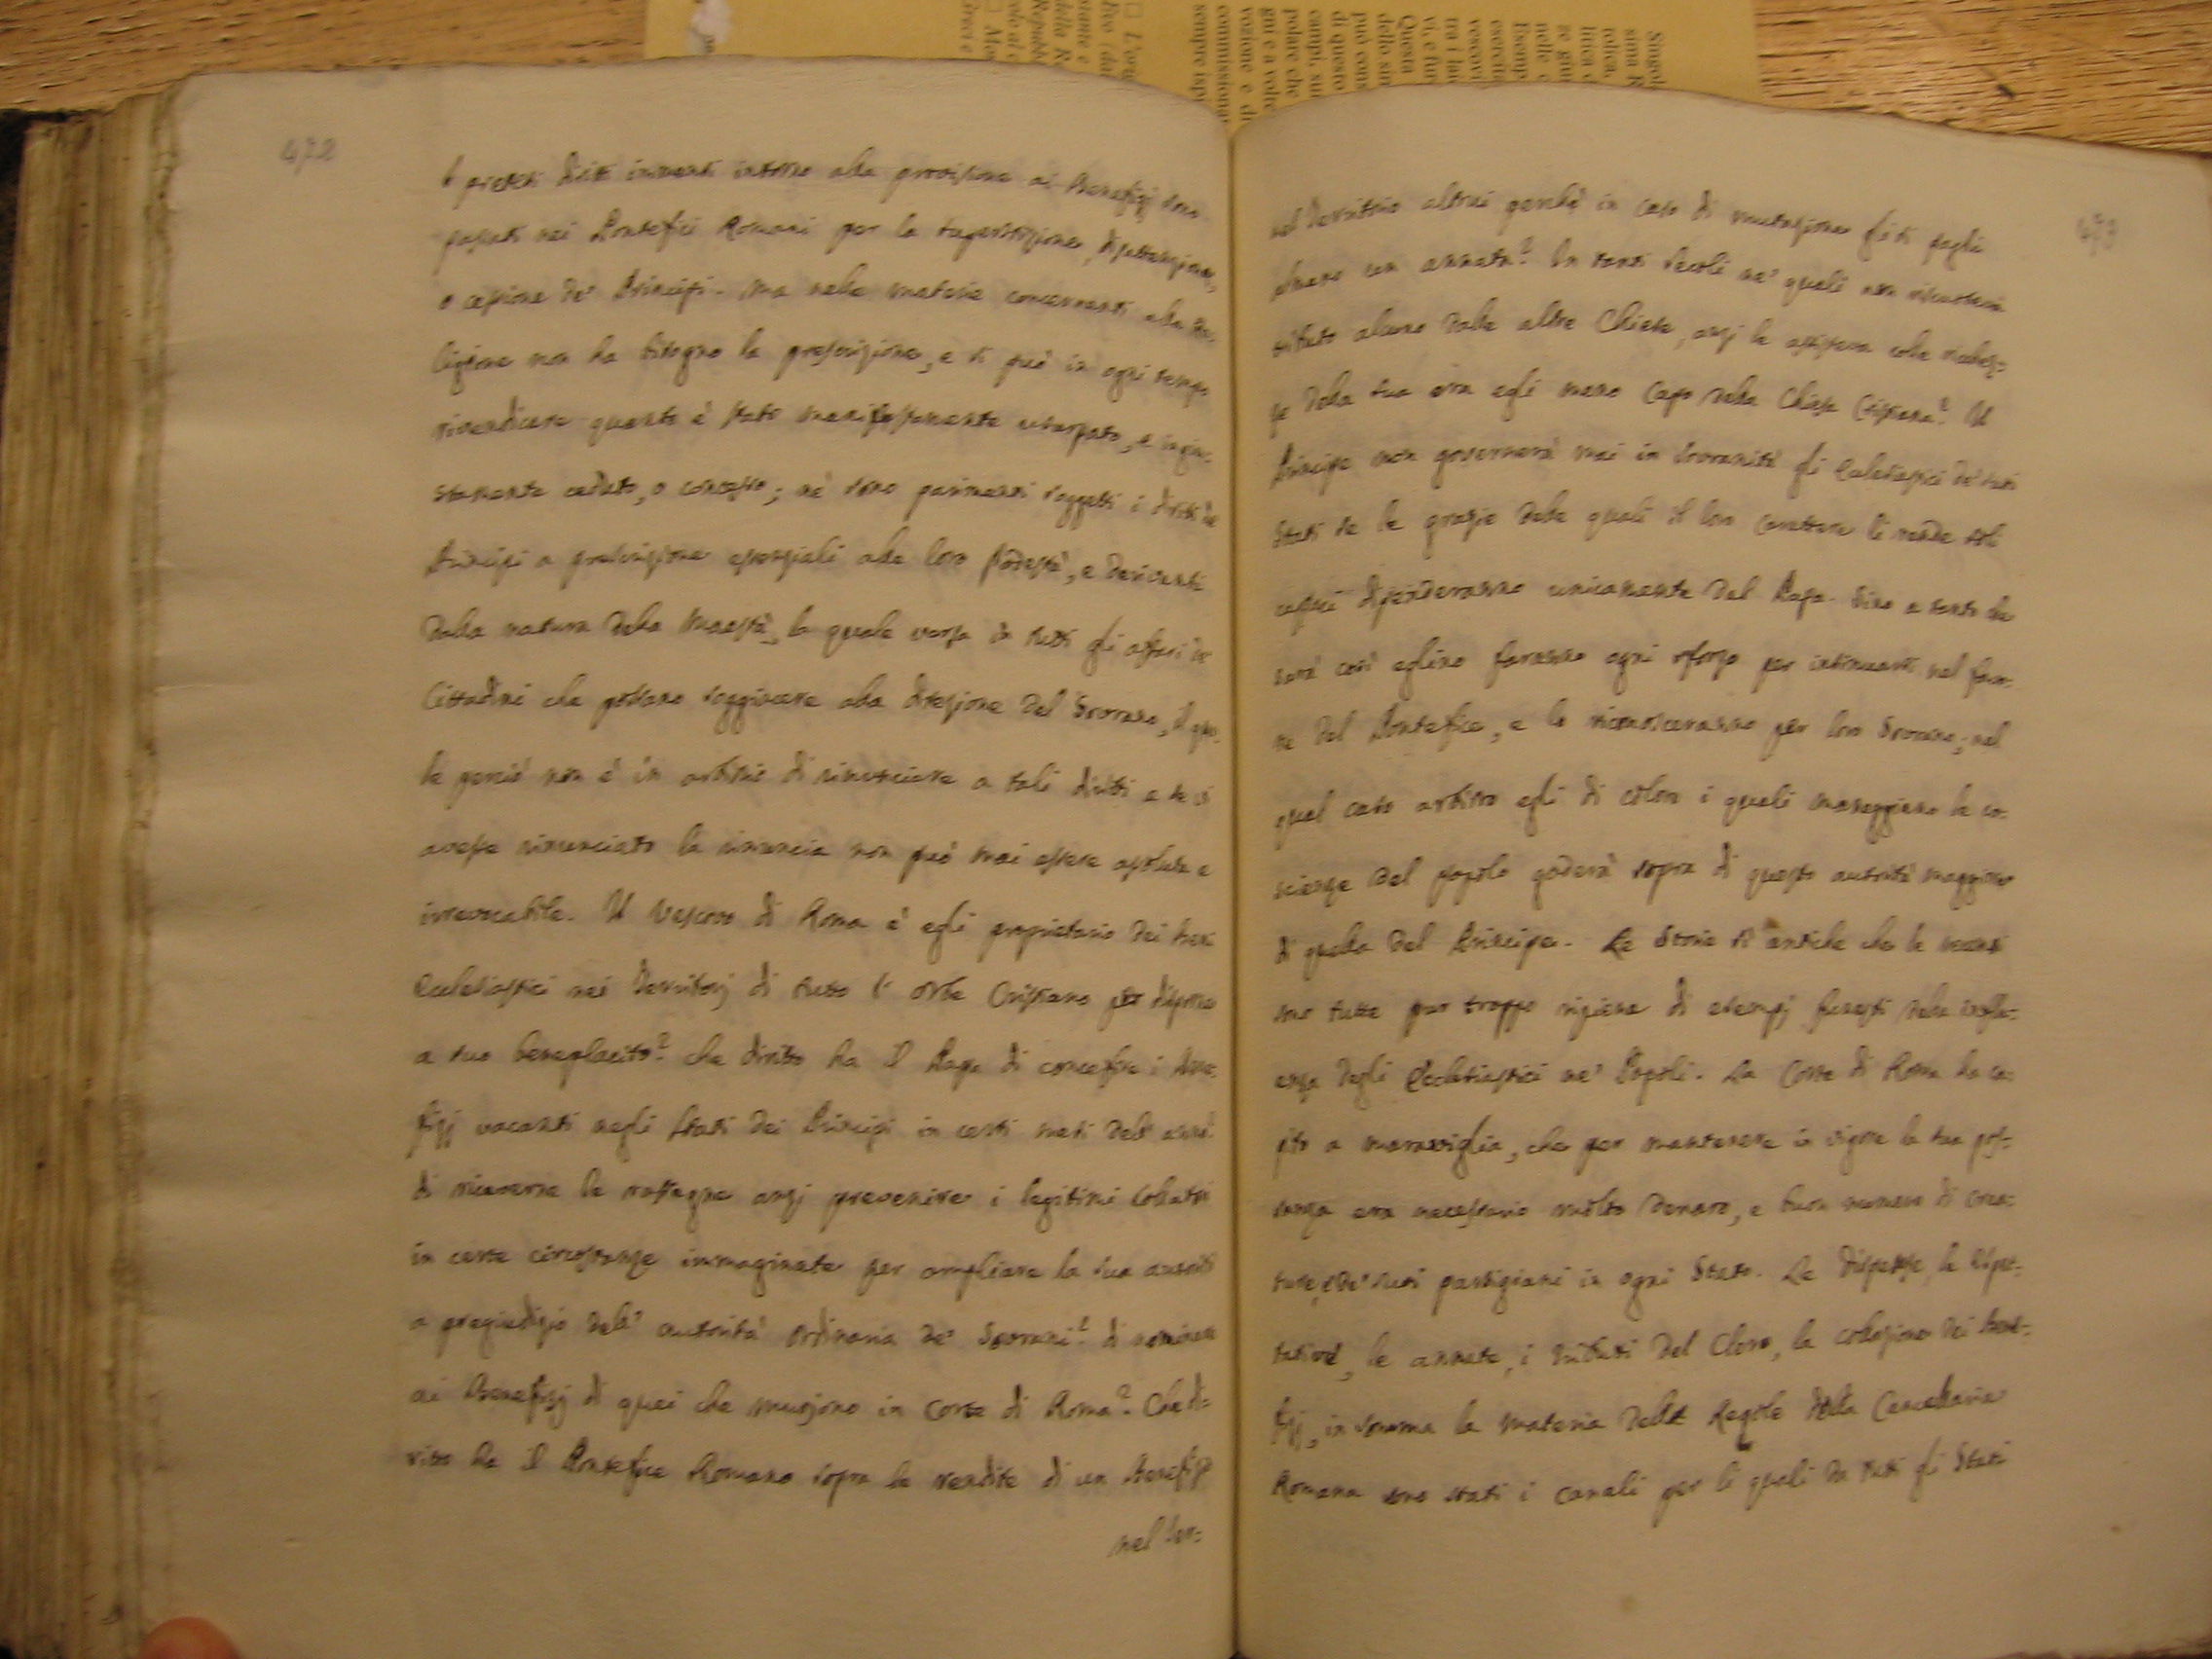 472
I pretesi diritti inerenti intorno alla provisione ai Benefizj sono
passati nei Pontefici Romani per la superstizione, disattenzione,
o cessione de' Principi. Ma nelle materie concernenti alla Re-
ligione non ha bisogno la prescrizione, e si può in ogni tempo
rivendicare quanto è stato manifestamente usurpato, e ingiu-
stamente ceduto, o concesso; nè sono parimenti soggetti i diritti de'
Principi a prescrizione essenziali alla loro Podestà, e derivanti
dalla natura della Maestà, la quale versa in tutti gli affari de'
Cittadini che possano soggiacere alla direzione del Sovrano, il qua-
le perciò non è in arbitrio di rinunciare a tali diritti e se vi
avesse rinunciato la rinuncia non può mai essere assoluta e
irrevocabile. Il Vescovo di Roma è egli proprietario dei beni
Ecclesiastici nei Territorj di tutto l'orbe Cristiano per disporne
a suo beneplacito? che diritto ha il Papa di conferire i Bene-
fizj vacanti negli Stati dei Principi in certi mesi dell'anno:
di riceverne le rassegne anzi prevenire i legitimi Collatori
in certe circostanze immaginate per ampliare la sua autorità
a pregiudizio dell'autorità ordinaria de' Sovrani? di nominare
ai Benefizj di quei che muojono in Corte di Roma? Che di-
ritto ha il Pontefice Romano sopra le rendite di un Benefizio
nel Ter-
473
nel Territorio altrui perchè in caso di mutazione gli si paghi
almeno un annata? In tanti secoli ne' quali non riscuoteva
tributo alcuno dalle altre Chiese, anzi le assisteva colle ricchez-
ze della sua era egli meno Capo della Chiesa Cristiana? Il
Principe non governerà mai in Sovranità gli Ecclesiastici de' suoi
Stati se le grazie delle quali il loro carattere li rende soli
capaci dipenderanno unicamente dal Papa. Sino a tanto che
sarà così eglino faranno ogni sforzo per insinuarsi nel favo-
re del Pontefice, e lo riconosceranno per loro Sovrano; nel
qual caso arbitro egli di coloro i quali maneggiano le co-
scienze del popolo goderà sopra di questo autorità maggiore
di quella del Principe. Le Storie sì antiche che le recenti
sono tutte pur troppo ripiene di esempj funesti della influ-
enza degli Ecclesiastici ne' Popoli. La Corte di Roma ha ca-
pito a maraviglia, che per mantenere in vigore la sua pos-
sanza era necessario molto denaro, e buon numero di crea-
ture, e de' suoi partigiani in ogni Stato. Le Dispense, le Aspet-
tative, le annate, i tributi del Clero, la collazione dei Bene-
fizj, in somma la materia delle Regole della Cancelleria
Romana sono stati i canali per li quali da tutti gli Stati